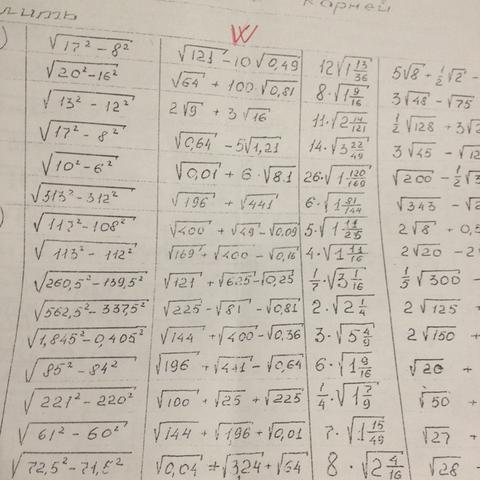 корней
W
√17² - 8² √121 - 10√0,49 12√1 13/36
√20² - 16² √64 + 100·√0,81 8·√1 9/16 3√48 - √75
√13² - 12² 2√9 + 3√16 11·√2 14/121
√17² - 8² √0,64 - 5√1,21 14·√3 22/49
√10² - 6² √0,01 + 6·√81 26·√1 120/169
√313² - 312² √196 + √441 6·√1 81/144
√117² - 108² √400 + √49 - √0,09 5·√1 11/25
√113² - 112² √169 + √400 - √0,16 4·√1 11/16
√260,5² - 139,5² √121 + √625 - √0,25 1/7·√3 1/16 1/5 √300 -
√562,5² - 337,5² √225 - √81 - √0,81 2·√2 1/4 2√125 +
√1,845² - 0,405² √144 + √400 - √0,36 3·√5 4/9 2√150 +
√85² - 84² √196 + √441 - √0,64 6·√1 9/16 +
√221² - 220² √100 + √25 + √225 1/4·√1 7/9 √50 +
√61² - 60² √144 + √1,96 + √0,01 7·√1 15/49 √27 +
√72,5² - 71,5² √0,04 + √324 + √64 8·√2 4/16 √28 -